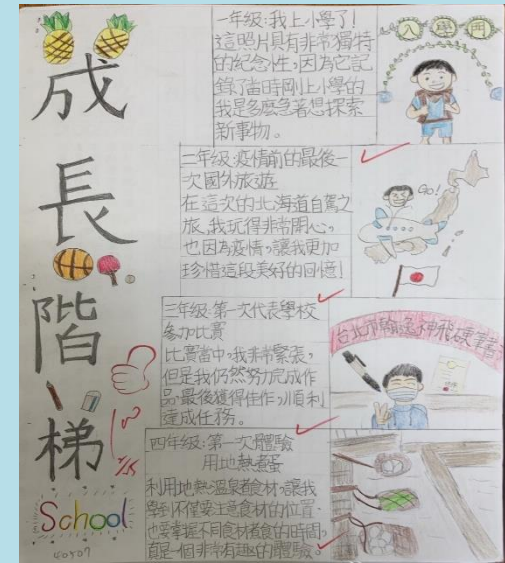 成長階梯
School
40507
一年級:我上小學了!
這照片具有非常獨特
的紀念性,因為它記
錄了當時剛上小學的
我是多麼急著想探索
新事物。
入學用
二年級:疫情前的最後一
次國外旅遊
在這次的北海道自駕之
旅,我玩得非常開心,
也因為疫情,讓我更加
珍惜這段美好的回憶!
Go!
三年級:第一次代表學校
參加比賽
比賽當中,我非常緊張,
但是我仍然努力完成作
品,最後獲得佳作,順利
達成任務。
四年級:第一次體驗
用地熱煮蛋
利用地熱溫泉煮食材,讓我
學到不僅要注意食材的位置,
也要掌握不同食材煮食的時間,
真是一個非常有趣的體驗。